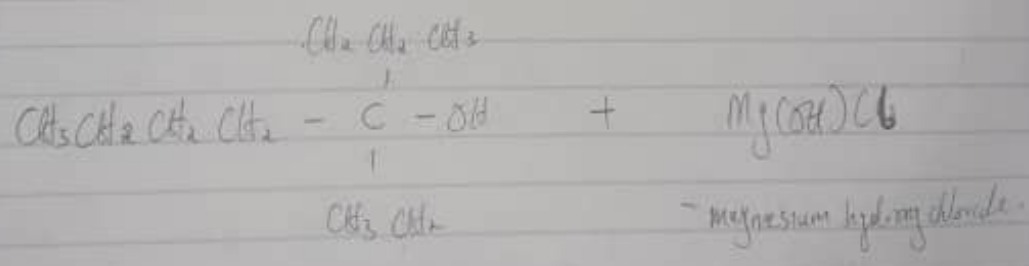 CH₂ CH₂ CH₃
|
CH₃CH₂CH₂CH₂ - C - OH + Mg(OH)Cl
|
CH₃ CH₂
- magnesium hydroxy chloride.